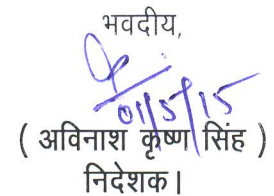 भवदीय,
01/5/15
( अविनाश कृष्ण सिंह )
निदेशक।